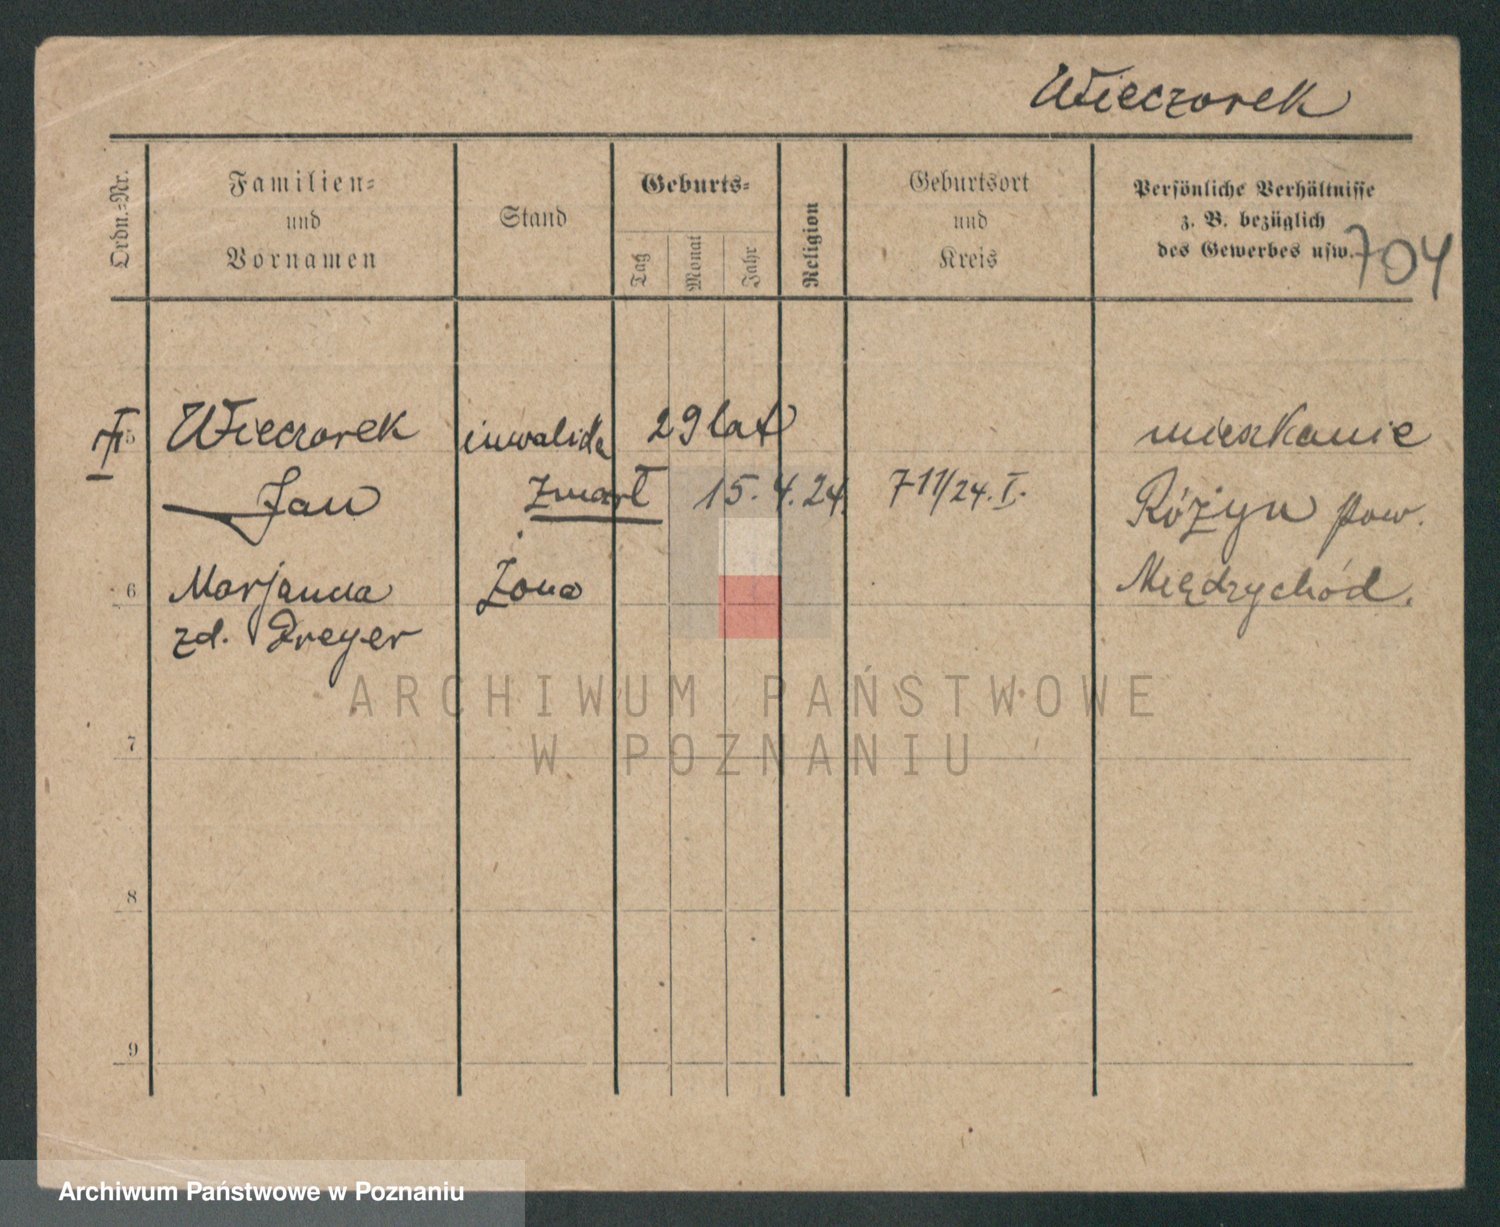 Wieczorek
Ordn.-Nr.
Familien-
und
Vornamen
Stand
Geburts-
Tag
Monat
Jahr
Religion
Geburtsort
und
Kreis
Persönliche Verhältnisse
z. B. bezüglich
des Gewerbes usw.
704
5
Wieczorek
inwalida
29 lat
mieszkanie
Jan
Zmarł
15.4.24.
711/24.I.
Różyn pow.
6
Marjanna
Żona
Międzychód.
zd. Dreyer
7
8
9
ARCHIWUM PAŃSTWOWE
W POZNANIU
Archiwum Państwowe w Poznaniu